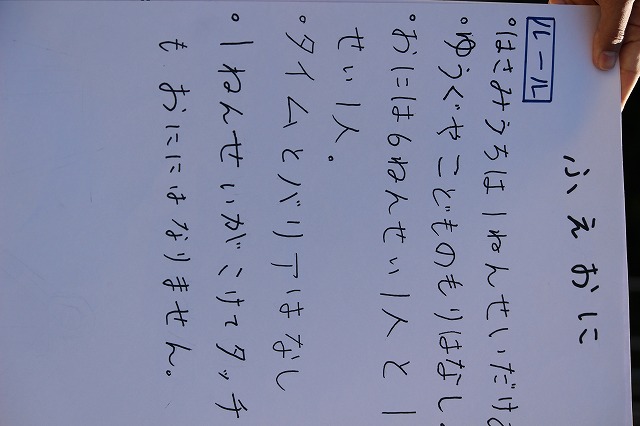 ふえおに
ルール
・はさみうちは1ねんせいだけ
・ゆうぐやこどものもりはなし。
・おには6ねんせい1人と1
せい1人。
・タイムとバリアはなし
・1ねんせいがこけてタッチ
も おににはなりません。